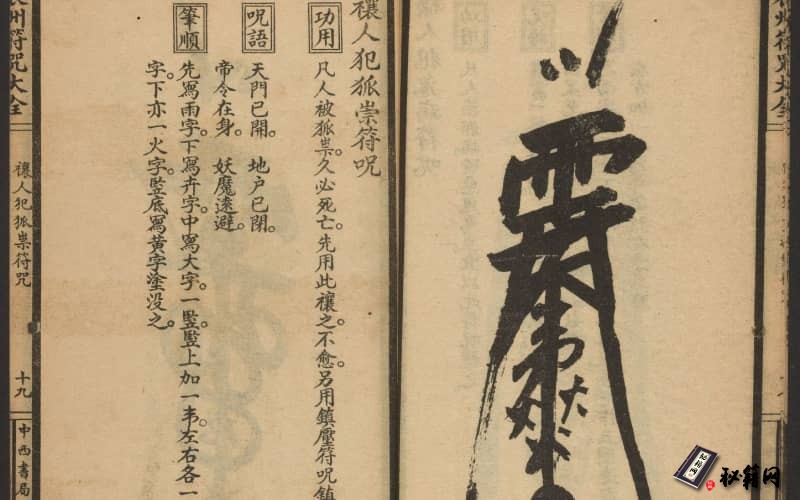 州符咒大全
禳人犯狐祟符咒
功用
凡人被狐祟。久必死亡。先用此禳之。不愈。另用鎮壓符咒鎮
咒語
天門已開。 地户已閉。
帝令在身。 妖魔遠避。
筆順
先寫雨字。下寫卉字。中寫大字。一竪。竪上加一韦。左右各一
字。下亦一火字。竪底寫黄字塗没之。
州符咒大全
禳人犯狐祟符咒
十九
中西書局
秘籍网